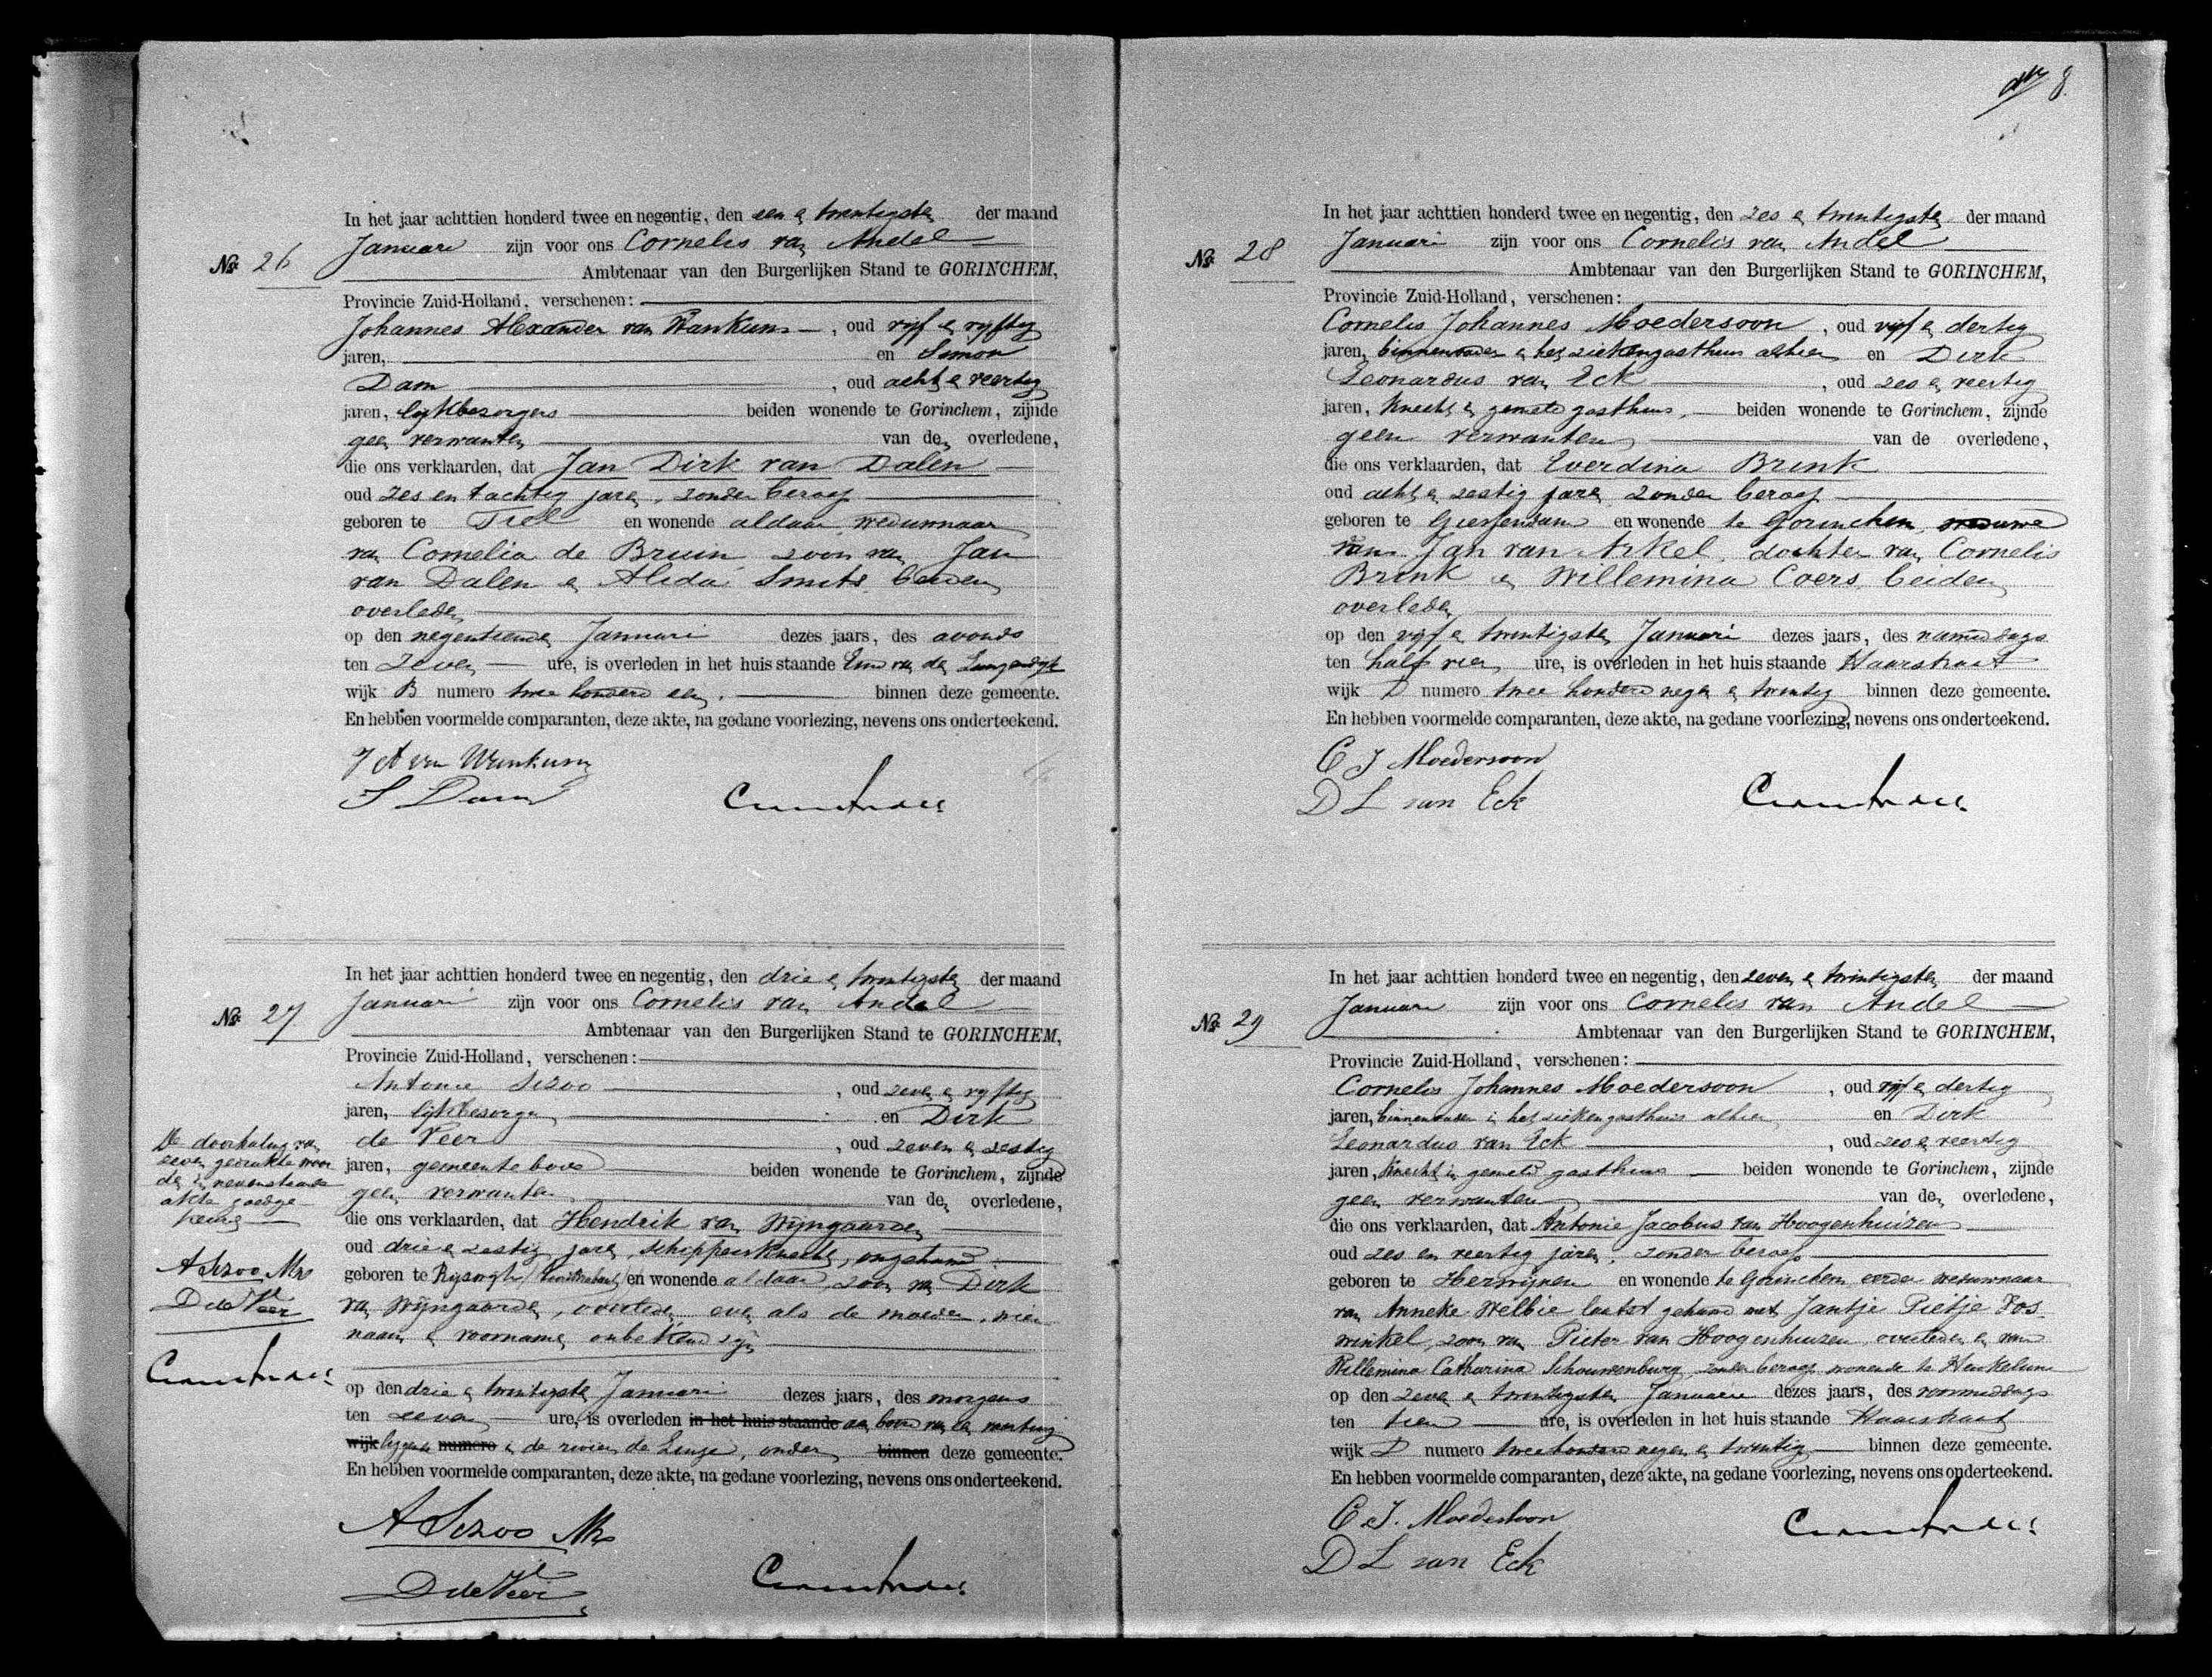 8.
No. 26
In het jaar achttien honderd twee en negentig, den een en twintigsten der maand
Januari zijn voor ons Cornelis van Andel
Ambtenaar van den Burgerlijken Stand te GORINCHEM,
Provincie Zuid-Holland, verschenen:
Johannes Alexander van Wankum, oud vijf en vijftig
jaren, en Simon
Dam, oud acht en veertig
jaren, lijkbezorgers beiden wonende te Gorinchem, zijnde
geen verwanten van den overledene,
die ons verklaarden, dat Jan Dirk van Dalen
oud zes en tachtig jaren, zonder beroep
geboren te Tiel en wonende aldaar weduwnaar
van Cornelia de Bruin, zoon van Jan
van Dalen en Alida Smits beiden
overleden
op den negentienden Januari dezes jaars, des avonds
ten zeven ure, is overleden in het huis staande Eind van den
wijk B numero twee honderd een, binnen deze gemeente.
En hebben voormelde comparanten, deze akte, na gedane voorlezing, nevens ons onderteekend.
J A van Wankum
S Dam
No. 27
In het jaar achttien honderd twee en negentig, den drie en twintigsten der maand
Januari zijn voor ons Cornelis van Andel
Ambtenaar van den Burgerlijken Stand te GORINCHEM,
Provincie Zuid-Holland, verschenen:
Antonie Sezoo, oud zeven en vijftig
jaren, lijkbezorger en Dirk
de Veer, oud zeven en zestig
jaren, gemeentebode beiden wonende te Gorinchem, zijnde
geen verwanten van den overledene,
die ons verklaarden, dat Hendrik van Wijngaarden
oud drie en zestig jaren, schippersknecht, ongehuwd
geboren te en wonende aldaar, zoon van Dirk
van Wijngaarden, overleden even als de moeder, wier
naam en voornamen onbekend zijn
op den drie en twintigsten Januari dezes jaars, des morgens
ten zeven ure, is overleden in het huis staande aan boord van een vaartuig
wijk liggende numero in de rivier de Linge, onder binnen deze gemeente.
En hebben voormelde comparanten, deze akte, na gedane voorlezing, nevens ons onderteekend.
A Sezoo
D de Veer
De doorhaling van
zeven gedrukte woor
den in nevenstaande
akte goedge
keurd
A Sezoo
D de Veer
No. 28
In het jaar achttien honderd twee en negentig, den zes en twintigsten der maand
Januari zijn voor ons Cornelis van Andel
Ambtenaar van den Burgerlijken Stand te GORINCHEM,
Provincie Zuid-Holland, verschenen:
Cornelis Johannes Moedersoon, oud vijf en dertig
jaren, binnenvader in het ziekengasthuis alhier en Dirk
Leonardus van Eck, oud zes en veertig
jaren, knecht in gemeld gasthuis, beiden wonende te Gorinchem, zijnde
geen verwanten van de overledene,
die ons verklaarden, dat Everdina Brink
oud acht en zestig jaren zonder beroep
geboren te Giessendam en wonende te Gorinchem, weduwe
van Jan van Arkel, dochter van Cornelis
Brink en Willemina Coers beiden
overleden
op den vijf en twintigsten Januari dezes jaars, des namiddags
ten half vier ure, is overleden in het huis staande Haarstraat
wijk D numero twee honderd negen en twintig binnen deze gemeente.
En hebben voormelde comparanten, deze akte, na gedane voorlezing, nevens ons onderteekend.
C J Moedersoon
D L van Eck
No. 29
In het jaar achttien honderd twee en negentig, den zeven en twintigsten der maand
Januari zijn voor ons Cornelis van Andel
Ambtenaar van den Burgerlijken Stand te GORINCHEM,
Provincie Zuid-Holland, verschenen:
Cornelis Johannes Moedersoon, oud vijf en dertig
jaren, binnenvader in het ziekengasthuis alhier en Dirk
Leonardus van Eck, oud zes en veertig
jaren, knecht in gemeld gasthuis beiden wonende te Gorinchem, zijnde
geen verwanten van den overledene,
die ons verklaarden, dat Antonie Jacobus van Hoogenhuizen
oud zes en veertig jaren, zonder beroep
geboren te Herwijnen en wonende te Gorinchem eerder weduwnaar
van Anneke Welbie laatst gehuwd met Jantje Pietje Vos-
winkel, zoon van Pieter van Hoogenhuizen overleden en van
Willemina Catharina Schouwenburg, zonder beroep wonende te Heukelum
op den zeven en twintigsten Januari dezes jaars, des voormiddags
ten tien ure, is overleden in het huis staande Haarstraat
wijk D numero twee honderd negen en twintig binnen deze gemeente.
En hebben voormelde comparanten, deze akte, na gedane voorlezing, nevens ons onderteekend.
C J. Moedersoon
D L van Eck